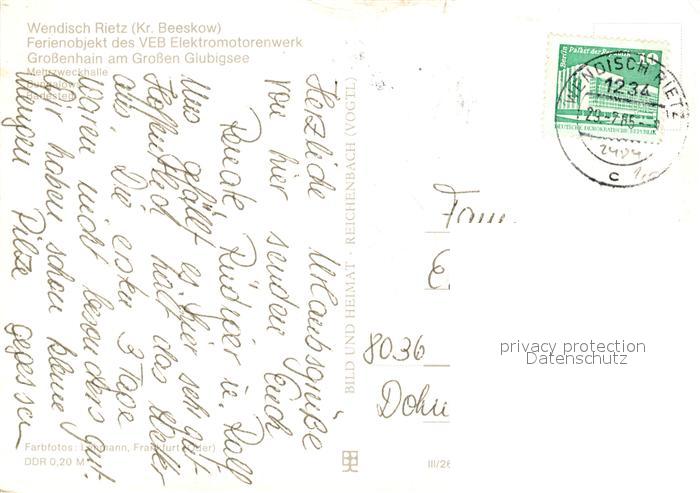 Wendisch Rietz (Kr. Beeskow)
Ferienobjekt des VEB Elektromotorenwerk
Großenhain am Großen Glubigsee
Mehrzweckhalle
Bungalow
Badesteg
Herzliche Urlaubsgrüße
von hier senden Euch
Beate, Rüdiger u. Ralf
Uns gefällt es hier sehr gut.
Hoffentlich hält das Wetter
aus. Die ersten 3 Tage
waren nicht besonders gut.
Wir haben schon kleine
Mengen Pilze gegessen
Farbfotos: Lehmann, Frankfurt (Oder)
DDR 0,20 M
BILD UND HEIMAT · REICHENBACH (VOGTL)
III/26
Berlin Palast der Republik
10
DEUTSCHE DEMOKRATISCHE REPUBLIK
WENDISCH RIETZ
1234
c
Fam.
8036
privacy protection
Datenschutz